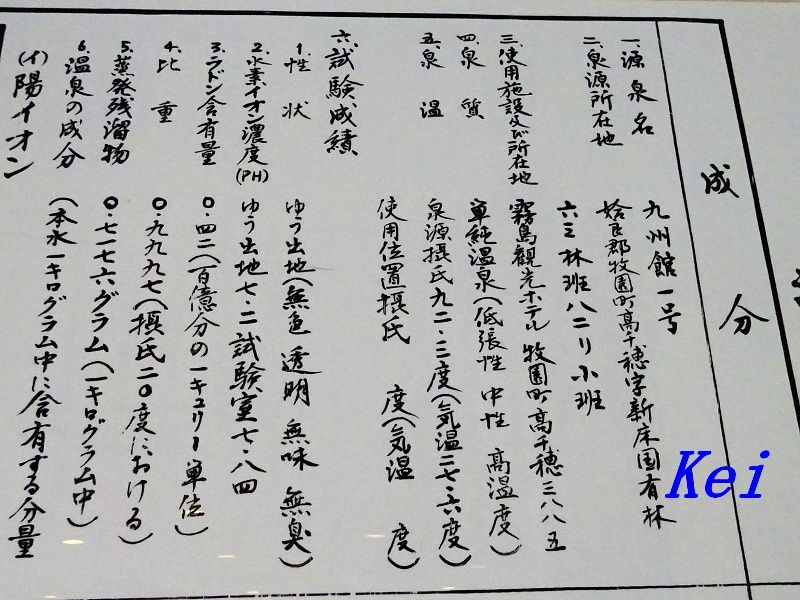 成分
一、源泉名 九州館一号
二、泉源所在地 姶良郡牧園町高千穂字新床国有林
六三林班八二リ小班
三、使用施設及び所在地 霧島観光ホテル 牧園町高千穂三八八五
四、泉質 単純温泉(低張性 中性 高温度)
五、泉温 泉源摂氏九二・三度(気温二七・六度)
使用位置摂氏 度(気温 度)
六、試験成績
1. 性状 ゆう出地(無色 透明 無味 無臭)
2. 水素イオン濃度(PH) ゆう出地七・二 試験室七・八四
3. ラドン含有量 〇・四二(百億分の一キュリー単位)
4. 比重 〇・九九九七(摂氏二〇度における)
5. 蒸発残溜物 〇・七一七六グラム(一キログラム中)
6. 温泉の成分 (本水一キログラム中に含有する分量
(イ)陽イオン
Kei